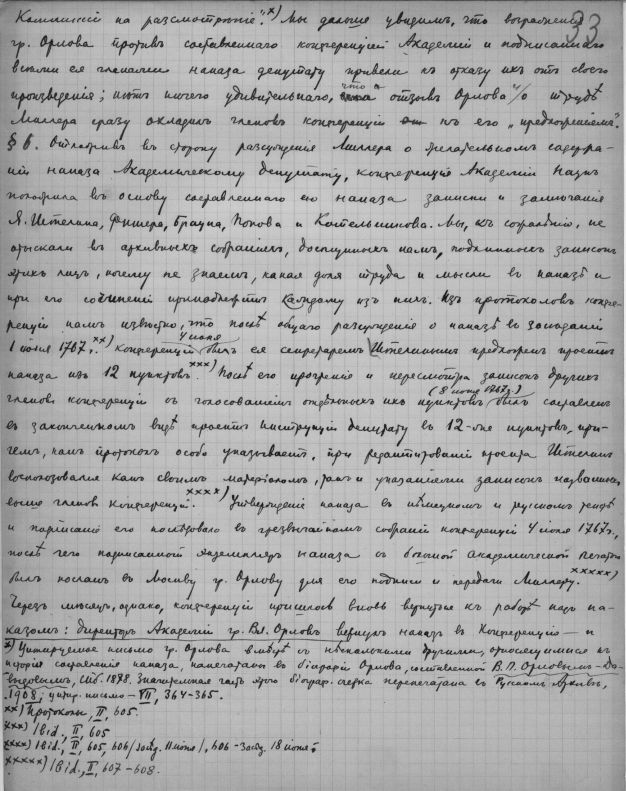 33
Комиссіи на разсмотрѣніе".х) Мы дальше увидимъ, что возраженія
гр. Орлова противъ составленнаго конференціей Академіи и подписаннаго
всѣми ея членами наказа депутату привели къ отказу ихъ отъ своего
произведенія; нѣтъ ничего удивительнаго, что отзывъ Орлова о трудѣ
Миллера сразу охладилъ членовъ конференціи къ его „предложеніямъ".
§ 6. Отложивъ въ сторону разсужденія Миллера о желательномъ содержа-
ніи наказа Академическому депутату, конференція Академіи Наукъ
положила въ основу составленнаго ею наказа записки и замѣчанія
Я. Штелина, Фишера, Брауна, Попова и Котельникова. Мы, къ сожалѣнію, не
отыскали въ архивныхъ собраніяхъ, доступныхъ намъ, подлинныхъ записокъ
этихъ лицъ, почему не знаемъ, какая доля труда и мысли въ наказѣ и
при его сочиненіи принадлежитъ каждому изъ нихъ. Изъ протоколовъ конфе-
ренціи намъ извѣстно, что послѣ общаго разсужденія о наказѣ въ засѣданіи
1 іюня 1767 г.хх) конференціи 4 іюня былъ ея секретаремъ Штелинымъ предложенъ проектъ
наказа изъ 12 пунктовъ.ххх) Послѣ его прочтенія и пересмотра записокъ другихъ
членовъ конференціи съ голосованіемъ отдѣльныхъ ихъ пунктовъ (8 іюня 1767 г.) былъ составленъ
въ законченномъ видѣ проектъ инструкціи депутату въ 12-ти пунктовъ, при-
чемъ, какъ протоколъ особо указываетъ, при редактированіи проекта Штелинъ
воспользовался какъ своимъ матеріаломъ, такъ и указаніями записокъ названныхъ
выше членовъ конференціи.хххх) Утвержденіе наказа въ нѣмецкомъ и русскомъ текстѣ
и подписаніе его послѣдовало въ чрезвычайномъ собраніи конференціи 4 іюня 1767 г.,
послѣ чего подписанный экземпляръ наказа съ большой академической печатью
былъ посланъ въ Москву гр. Орлову для его подписи и передачи Миллеру.ххххх)
Черезъ мѣсяцъ, однако, конференціи пришлось вновь вернуться къ работѣ надъ на-
казомъ: директоръ Академіи гр. Вл. Орловъ вернулъ наказъ въ Конференцію — и
х) Цитируемое письмо гр. Орлова вмѣстѣ съ нѣсколькими другими, относящимися къ
исторіи составленія наказа, напечатаны въ біографіи Орлова, составленной В. П. Орловымъ-Да-
выдовымъ, Спб. 1878. Значительная часть этого біограф. очерка перепечатана въ Русскомъ Архивѣ,
1908; цитир. письмо — VII, 364-365.
хх) Протоколы, II, 605.
ххх) Ibid., II, 605
хххх) Ibid., II, 605, 606 /засѣд. 11 іюня/, 606 - засѣд. 18 іюня.
ххххх) Ibid., II, 607-608.